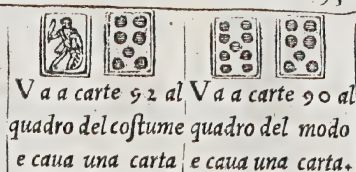 V a a carte 92 al
quadro del coſtume
e caua una carta
V a a carte 90 al
quadro del modo
e caua una carta.